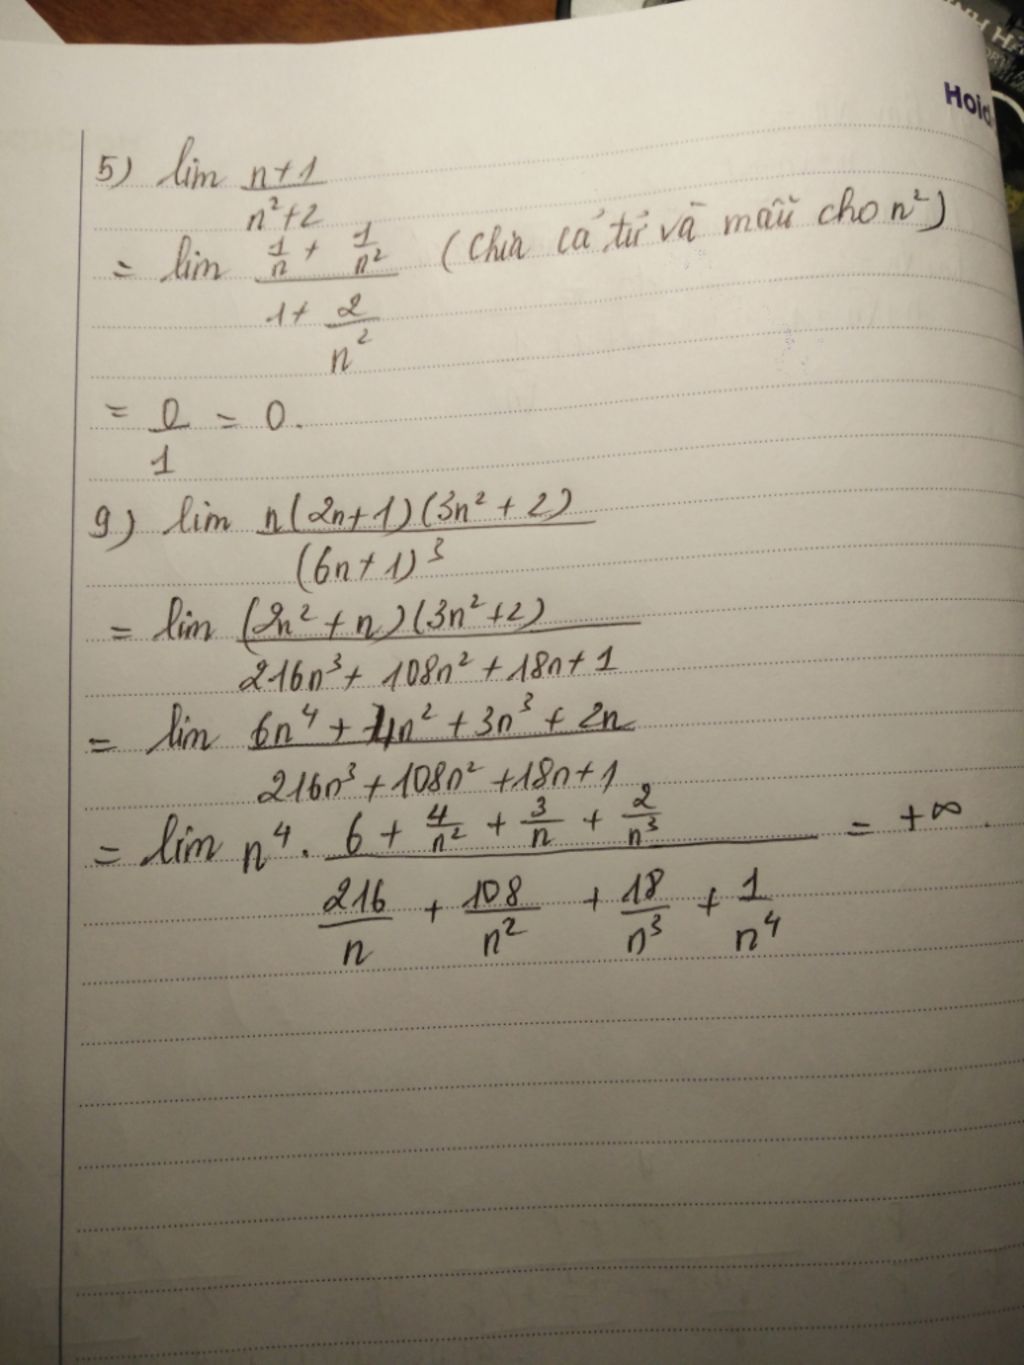 Hoid
5) lim (n+1)/(n²+2)
= lim (1/n + 1/n²)/(1 + 2/n²) (Chia cả tử và mẫu cho n²)
= 0/1 = 0.
9) lim n(2n+1)(3n²+2)/(6n+1)³
= lim (2n²+n)(3n²+2)/(216n³ + 108n² + 18n + 1)
= lim (6n⁴ + 4n² + 3n³ + 2n)/(216n³ + 108n² + 18n + 1)
= lim n⁴ . (6 + 4/n² + 3/n + 2/n³)/(216/n + 108/n² + 18/n³ + 1/n⁴) = +∞.